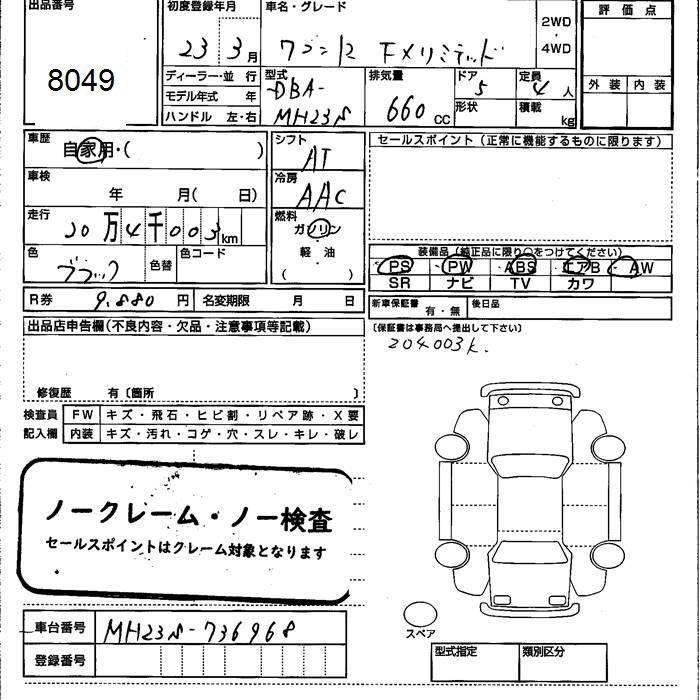 出品番号
8049
初度登録年月
23 3月
車名・グレード
ワゴンR FXリミテッド
2WD
・
4WD
評価点
外装 内装
ディーラー・並 行
モデル年式 年
ハンドル 左・右
型式
DBA-
MH23S
排気量
660 CC
ドア
5
形状
定員
4 人
積載
kg
車歴
自家用・( )
車検
年 月( 日)
走行
20万4千003km
色
ブラック
色替
色コード
シフト
AT
冷房
AAC
燃料
ガソリン
軽・油
( )
セールスポイント(正常に機能するものに限ります)
装備品(純正品に限り○をつけてください)
PS ・PW ・ABS ・エアB ・AW
SR ナビ TV カワ
R券 9,880 円 名変期限 月 日
新車保証書 有・無 後日品
(保証書は事務局へ提出して下さい)
204003K.
出品店申告欄(不良内容・欠品・注意事項等記載)
修復歴 有〔箇所 〕
検査員 FW キズ・飛石・ヒビ割・リペア跡・X要
記入欄 内装 キズ・汚れ・コゲ・穴・スレ・キレ・破レ
ノークレーム・ノー検査
セールスポイントはクレーム対象となります
車台番号 MH23S-736968
登録番号
スペア
型式指定 類別区分